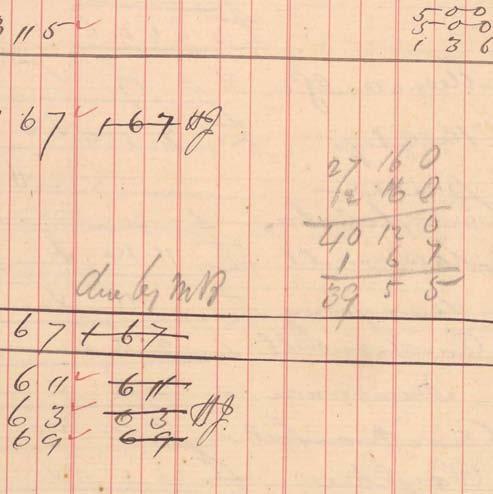 5 0 0
3 11 5 ✓ 5 0 0
1 3 6
6 7 ✓ 1 6 7 HJ
27 16 0
12 16 0
40 12 0
1 6 7
39 5 5
due by MR
6 7 1 6 7
6 11 ✓ 6 11
6 3 ✓ 6 3 HJ
6 9 ✓ 6 9